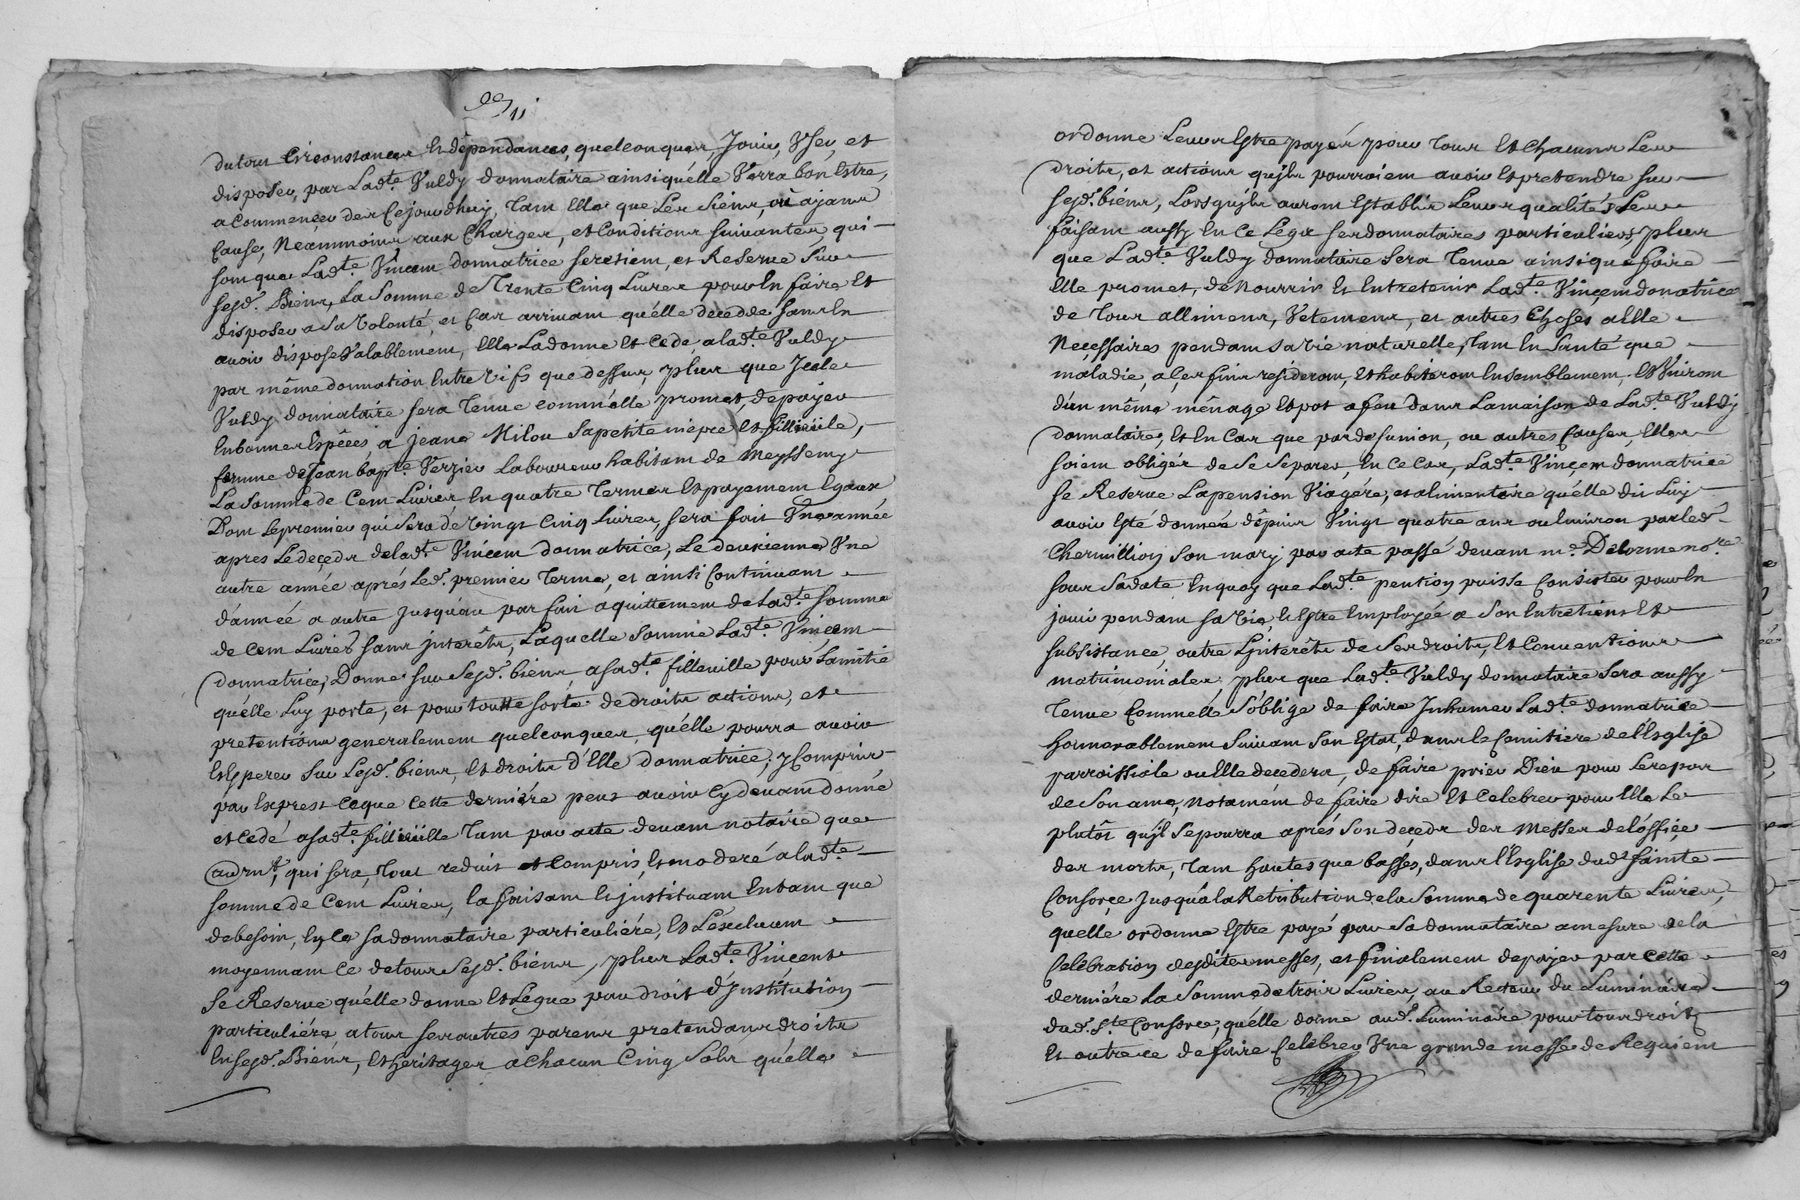 du tout Circonstances Et dépendances, quelconques, Jouir, User, et
disposer, par Ladte. Vuldy donnataire ainsi qu'élle Verra bon Estre,
a commencer dez Cejourdhuy, Tant Elle que Les Siens, où ajans
Cause, Neanmoins aux Charges, et Conditions suivantes qui
sont que Ladte. Vincent donnatrice se retient, et Reserve Sur
sesd. Biens, La Somme de Trente Cinq Livres pour En faire Et
disposer a Sa Volonté, et Cas arrivant qu'élle decedde sans En
avoir disposé Valablement, Elle La donne Et Cede a ladte. Vuldy
par même donnation Entre vifs que dessus, plus que Icele
Vuldy donnataire sera Tenue comm'elle promet de payer
En bonnes Espèces à jeane Milou Sa petite niépce Et fillieulle,
femme de Jean bapte. Verzier Laboureur habitant de Meyssemy
La Somme de Cent Livres En quatre Termes Et payement Egaux
Dont Le premier qui Sera de vingt Cinq Livres, sera fait Une année
apres Le décedz de ladte Vincent donnatrice, Le deuxienne Une
autre année aprés Led. premier Terme, et ainsi Continuant
d'année a autre jusqu'au parfait aquittement de Ladte. Somme
de Cent Livres sans jnterêts, Laquelle Somme Ladte. Vincent
donnatrice, Donne sur Sesd. biens, a sadte. filleuille pour L'amitié
qu'elle Luy porte, et pour toutte sorte de droits actions, et
pretentions generalement quelconques, qu'elle pourra avoir
Et Esperer Sur Lesd. biens, Et droits d'Elle donnatrice, y Compris
par Exprest ce que Cette derniére peut avoir Cy devant donné
et cedé a sadte. fillieulle Tant par acte devant notaire que
audrnt., qui sera, Tout reduit et Compris, Et moderé a ladte.
somme de Cent Livres, la faisant Et jnstituant En tant que
de besoin, En Ce sa donnataire particuliére, Et L'excluant
moyennant Ce de tous Sesd. biens, plus Ladte. Vincent
Se Reserve qu'elle donne Et Legue par droit d'jnstitution
particuliére a tous ses autres parens pretendans droits
En Sesd. Biens, Et heritages a Chacun Cinq Sols qu'elle
ordonne Leurs Estre payés pour Tous Et Chacuns Leurs
droits, et actions qu'jls pourroient avoir Et pretendre sur
sesd. biens, Lorsqu'jls auront Establis Leurs qualités, Les
faisant aussy En Ce Legs ses donnataires particuliers, plus
que Ladte. Vuldy donnataire sera Tenue ainsi que faire
Elle promet, de nourrir Et Entretenir Ladte. Vincent donatrice
de Tous allimens, Vetemens, et autres Choses a Elle
Necessaires pendant sa vie naturelle, Tant En Santé que
maladie, a Ces fins resideront, Et habiteront Ensemblement, Et Vivront
d'un même ménage Et pot a feu dans La maison de Ladte. Vuldy
donnataire, Et En Cas que par desunion, ou autres Causes, Elles
soient obligés de Se Separer, En Ce Cas, Ladte. Vincent donnatrice
se Reserve La pension Viagére, et alimentaire qu'élle dit Luy
avoir Esté donnée dépuis Vingt quatre ans ou Environ par led.
Chermillion son mary par acte passé devant me. Delorme nore.
sous Sa date En quoy que Ladte. pention puisse Consister pour En
jouir pendant sa vie, Et Estre Employée a Son Entretiens Et
subsistance, outre L'jnterêts de Ses droits, Et Conventions
matrimoniales. plus que Ladte. Vuldy donnataire Sera aussy
Tenue Comm'elle S'oblige de faire Jnhumer Ladte. donnatrice
honnorablement Suivant Son Estat, dans le Cemitiere de l'Esglise
parroissiale ou Elle decedera, de faire prier Dieu pour Le repos
de Son ame, notamént de faire dire Et Celebrer pour Elle Le
plutôt qu'jl Se pourra aprés Son decedz des Messes de l'offiçe
des morts, Tant hautes que basses, dans l'Esglise dudt Sainte
Consorçe Jusqu'à la Retribution de la Somme de quarente Livres,
qu'elle ordonne Estre payé par Sa donnataire a mesure de la
Celebration desdites messes, et finalement de payer par cette
derniére La Somme de trois Livres, au Recteur du Luminaire
dud. Ste. Consorce, qu'élle donne aud. Luminaire pour tous droits
Et outre ce de faire Celebrer Une grande messe de Requiem